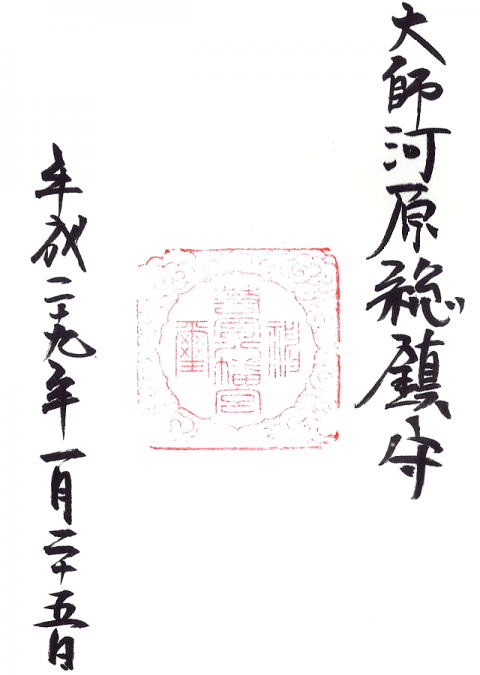 大師河原総鎮守
平成二十九年一月二十五日